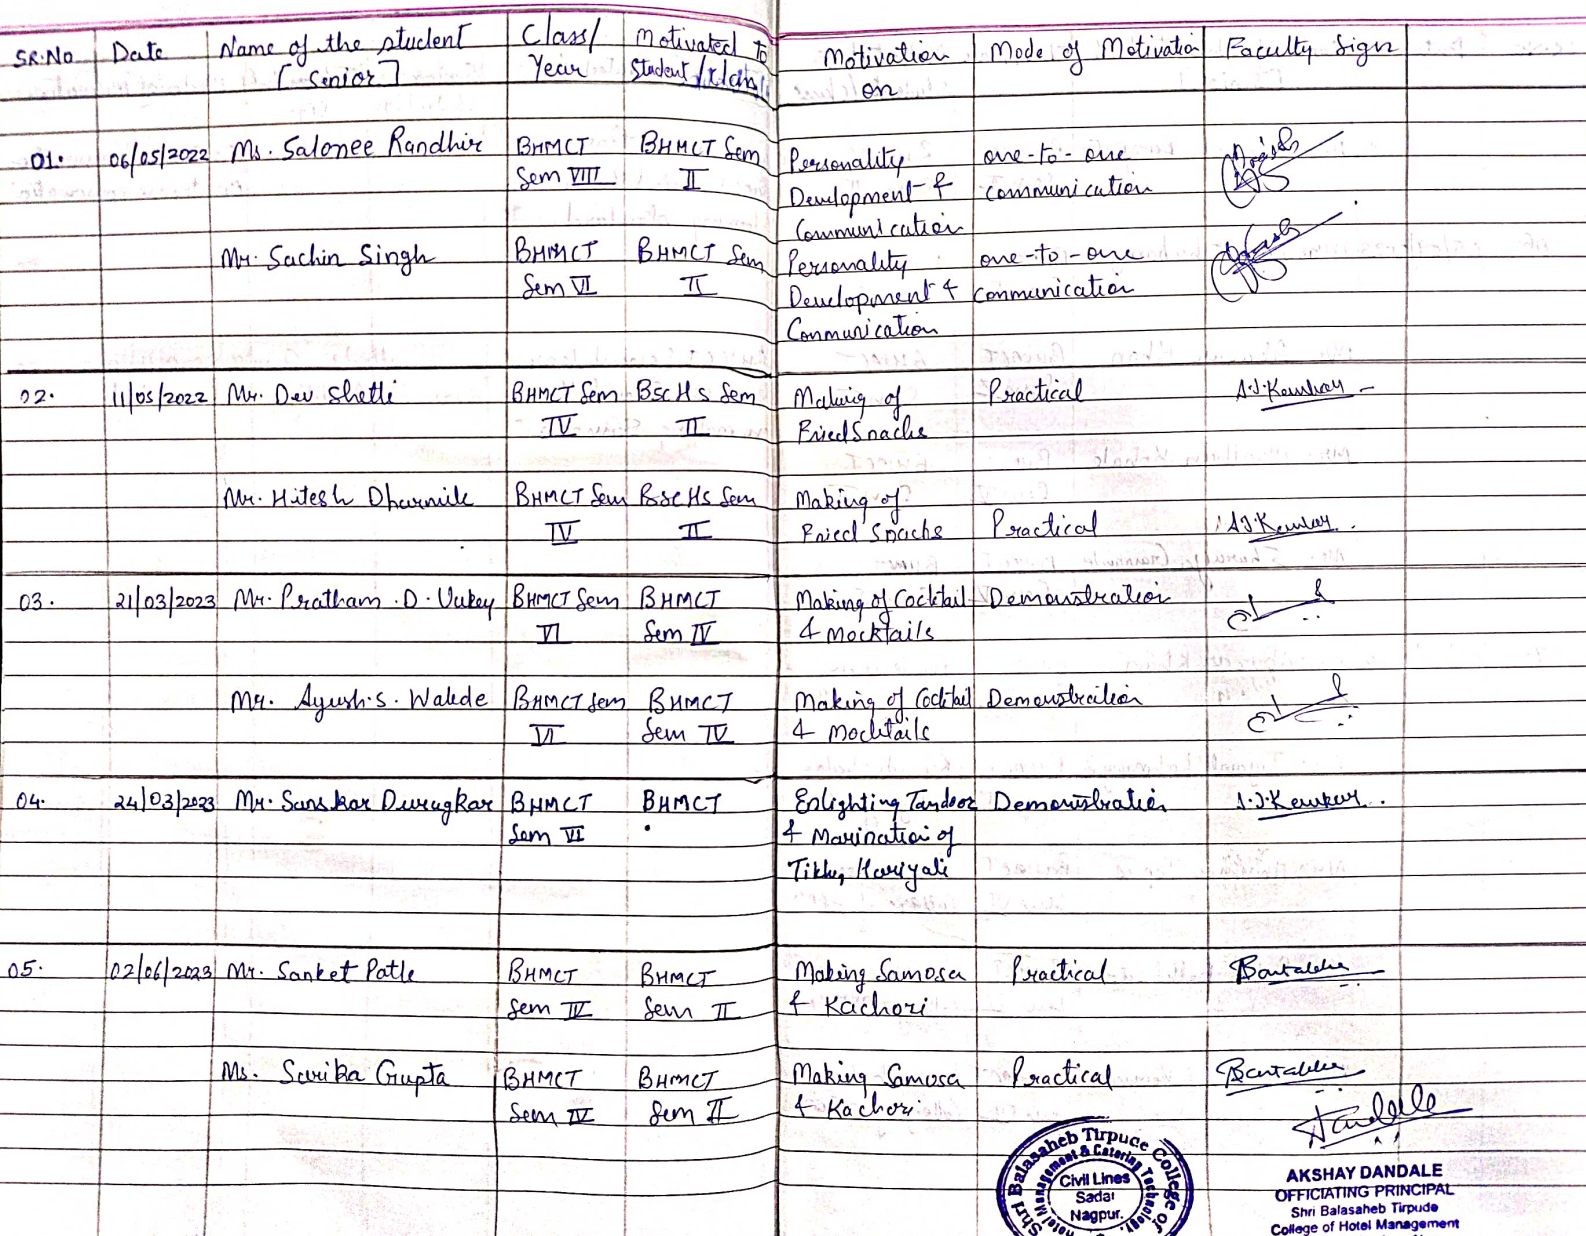 SR.No Date Name of the student [Senior] Class/Year Motivated to Student/Class Motivation on Mode of Motivation Faculty Sign
01. 06/05/2022 Ms. Salonee Randhir BHMCT Sem VIII BHMCT Sem II Personality Development & Communication one-to-one communication
Mr. Sachin Singh BHMCT Sem VI BHMCT Sem II Personality Development & Communication one-to-one communication
02. 11/05/2022 Mr. Dev Shetti BHMCT Sem IV BScHs Sem II Making of Fried Snacks Practical
Mr. Hitesh Dharmik BHMCT Sem IV BScHs Sem II Making of Fried Snacks Practical
03. 21/03/2023 Mr. Pratham .D. Uikey BHMCT Sem VI BHMCT Sem IV Making of Cocktail & Mocktails Demonstration
Mr. Ayush.S. Walde BHMCT Sem VI BHMCT Sem IV Making of Cocktail & Mocktails Demonstration
04. 24/03/2023 Mr. Sanskar Durugkar BHMCT Sem VI BHMCT Enlighting Tandoor & Marination of Tikka, Hariyali Demonstration
05. 02/06/2023 Mr. Sanket Patle BHMCT Sem IV BHMCT Sem II Making Samosa & Kachori Practical
Ms. Sarika Gupta BHMCT Sem IV BHMCT Sem II Making Samosa & Kachori Practical
Shri Balasaheb Tirpude College of
Hotel Management & Catering Technology,
Civil Lines
Sadar
Nagpur.
AKSHAY DANDALE
OFFICIATING PRINCIPAL
Shri Balasaheb Tirpude
College of Hotel Management